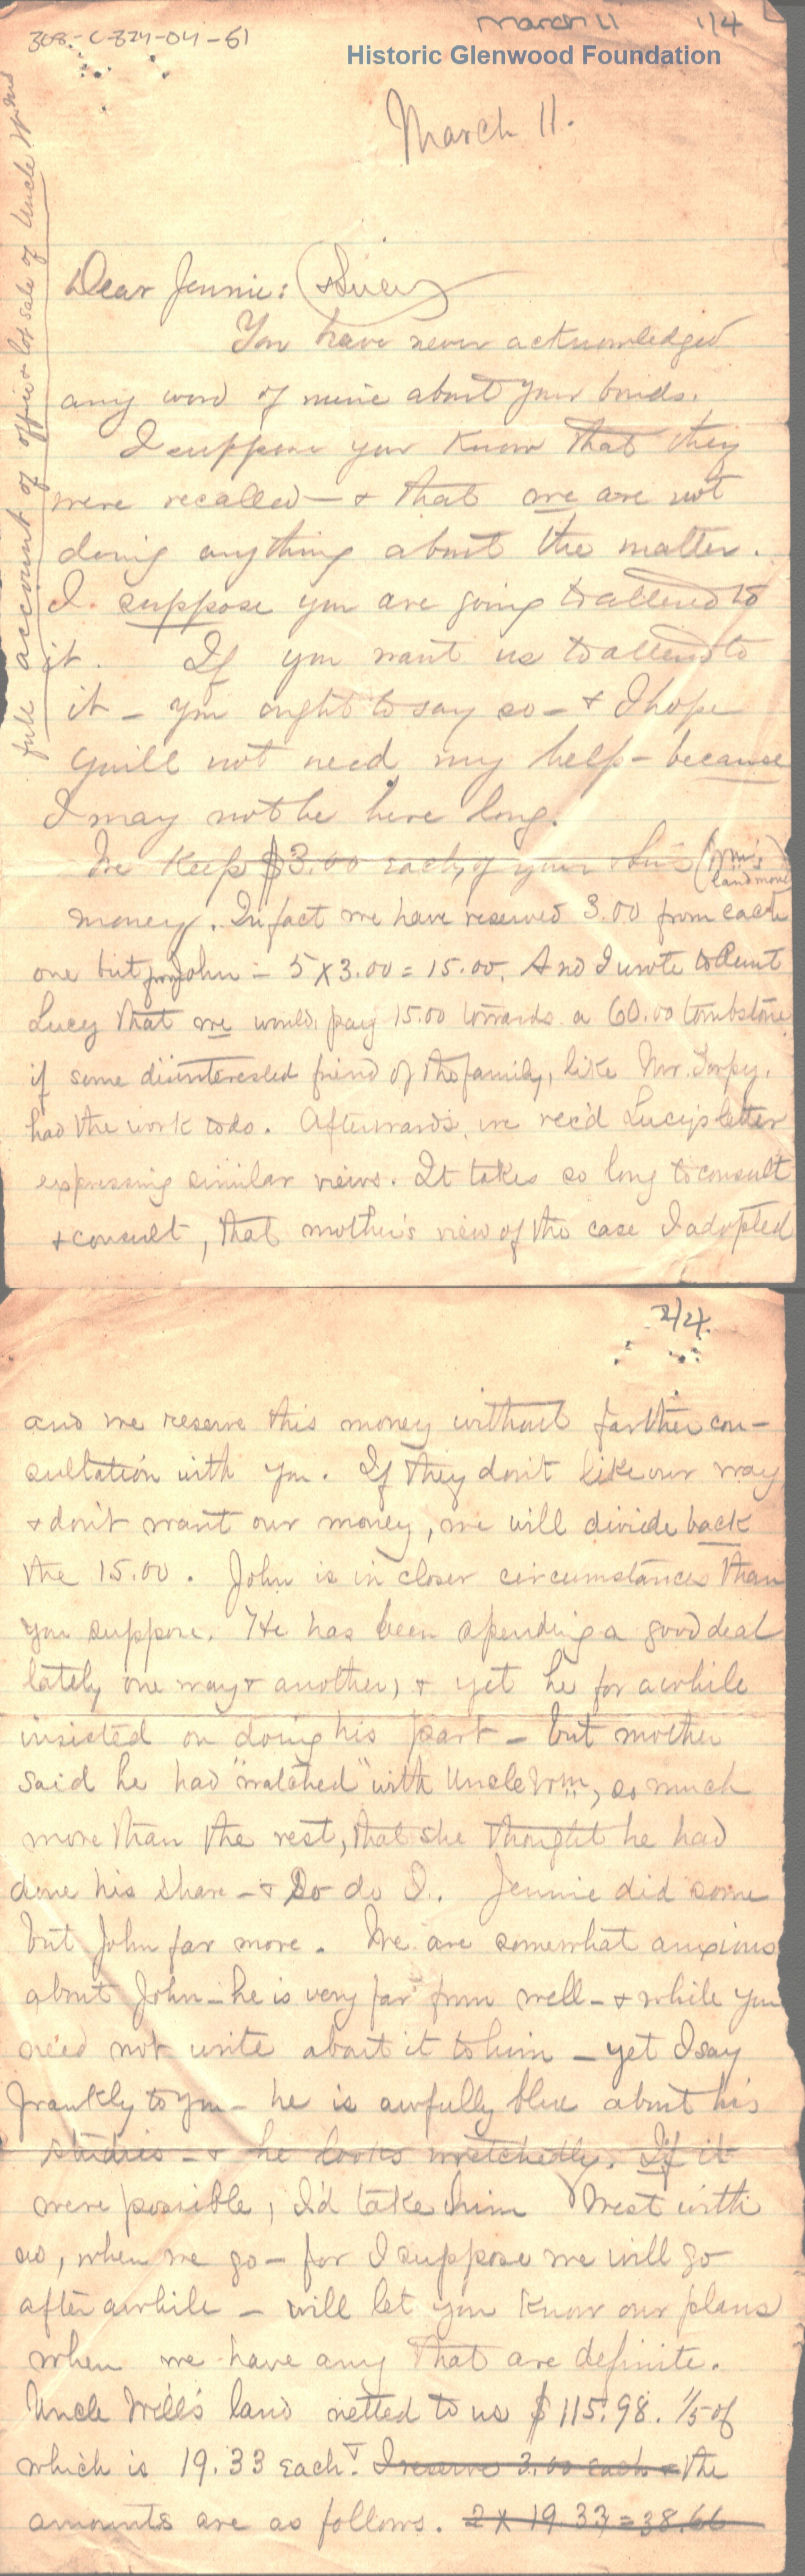 March 11 1/4
308-C-324-04-61
Historic Glenwood Foundation
March 11.
full account of office & lot sale of Uncle Wm
Dear Jennie: (& Lucy)
You have never acknowledged
any word of mine about your bonds.
I suppose you know that they
were recalled — & that we are not
doing anything about the matter.
I suppose you are going to attend to
it. If you want us to attend to
it — you ought to say so — & I hope
you'll not need my help — because
I may not be here long.
We keep $3.00 each, of your & Lu's (Wm's land money)
money. In fact we have reserved 3.00 from each
one but from John = 5 x 3.00 = 15.00. And I wrote to Aunt
Lucy that we would pay 15.00 towards a 60.00 tombstone
if some disinterested friend of the family, like Mr.
had the work to do. Afterwards, we rec'd Lucy's letter
expressing similar views. It takes so long to consult
& consult, that mother's view of the case I adopted
2/4.
and we reserve this money without farther con-
sultation with you. If they don't like our way
& don't want our money, we will divide back
the 15.00. John is in closer circumstances than
you suppose. He has been spending a good deal
lately one way & another, & yet he for awhile
insisted on doing his part — but mother
said he had "watched" with Uncle Wm, so much
more than the rest, that she thought he had
done his share — & So do I. Jennie did some
but John far more. We are somewhat anxious
about John — he is very far from well — & while you
need not write about it to him — yet I say
frankly to you — he is awfully blue about his
studies — & he looks wretchedly. If it
were possible, I'd take him West with
us, when we go — for I suppose we will go
after awhile — will let you know our plans
when we have any that are definite.
Uncle Will's land netted to us $115.98. 1/5 of
which is 19.33 each. I reserve 3.00 each & the
amounts are as follows. 2 x 19.33 = 38.66